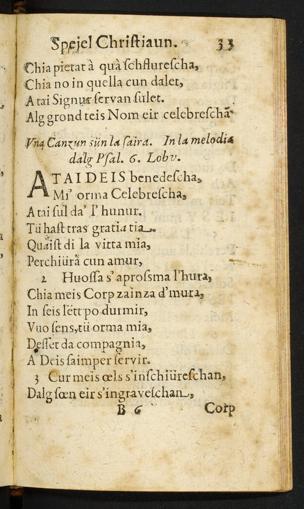 Spejel Christiaun. 33
Chia pietat à quà schflurescha,
Chia no in quella cun dalet,
A tai Signur servan sulet.
Alg grond teis Nom eir celebreschã
Vna Canzun sün la saira. In la melodia
dalg Psal. 6. Lobv.
A TAI DEIS benedescha,
Mi' orma Celebrescha,
A tai sul da' l' hunur.
Tü hast tras gratia tia
Quaist di la vitta mia,
Perchiürà cun amur,
2 Huossa s' aprossma l'hura,
Chia meis Corp zainza d'mura,
In seis lett po durmir,
Vuo sens, tü orma mia,
Desset da compagnia,
A Deis saimper servir.
3 Cur meis œls s'inschiüreschan,
Dalg sœn eir s'ingraveschan,
B 6 Corp